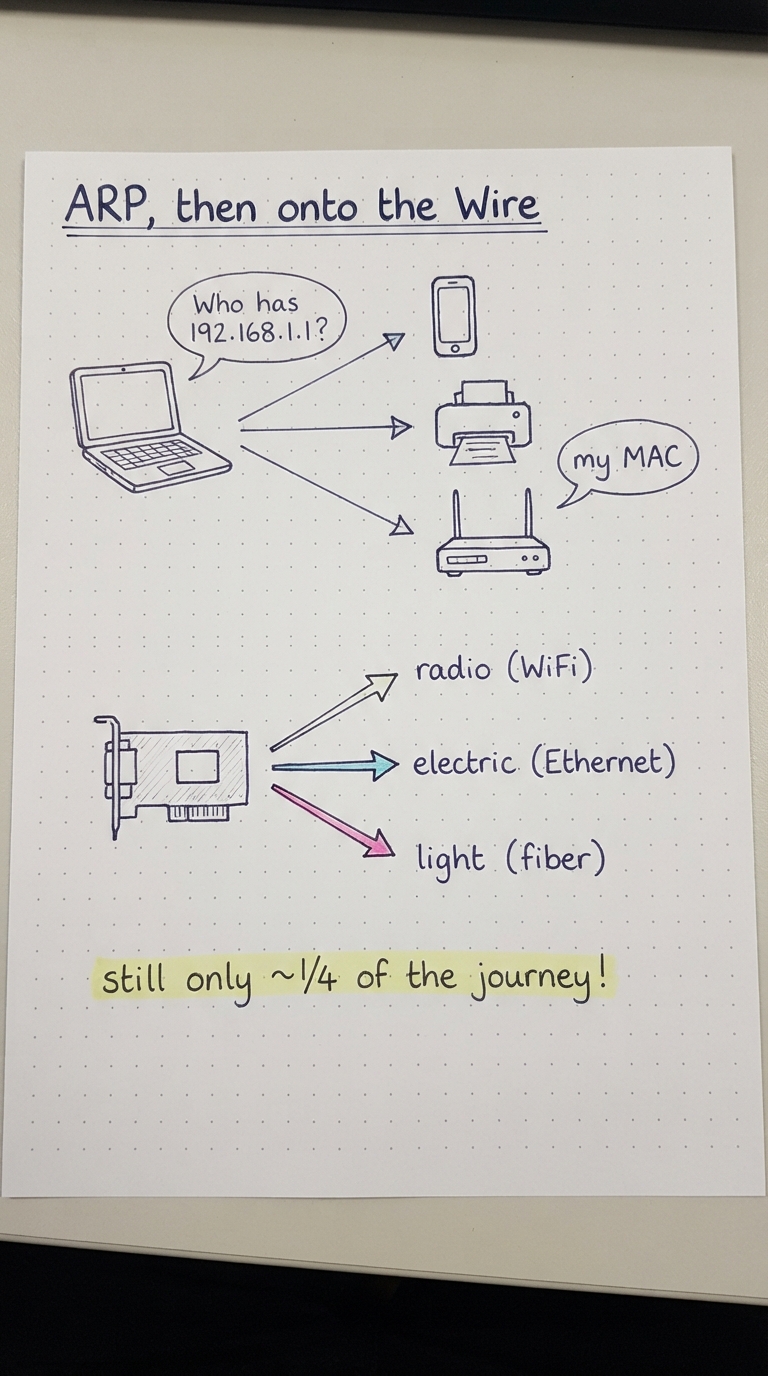 ARP, then onto the Wire
Who has
192.168.1.1?
my MAC
radio (WiFi)
electric (Ethernet)
light (fiber)
still only ~1/4 of the journey!